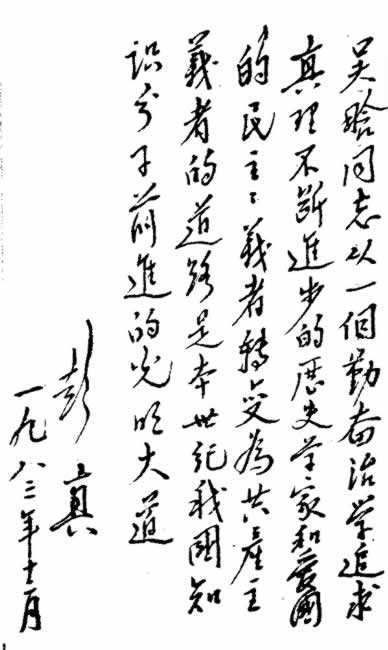 吴晗同志从一個勤奋治学追求
真理不断進步的歷史学家和爱國
的民主主義者轉变為共産主
義者的道路是本世纪我國知
识分子前進的光明大道
彭真
一九八三年十二月